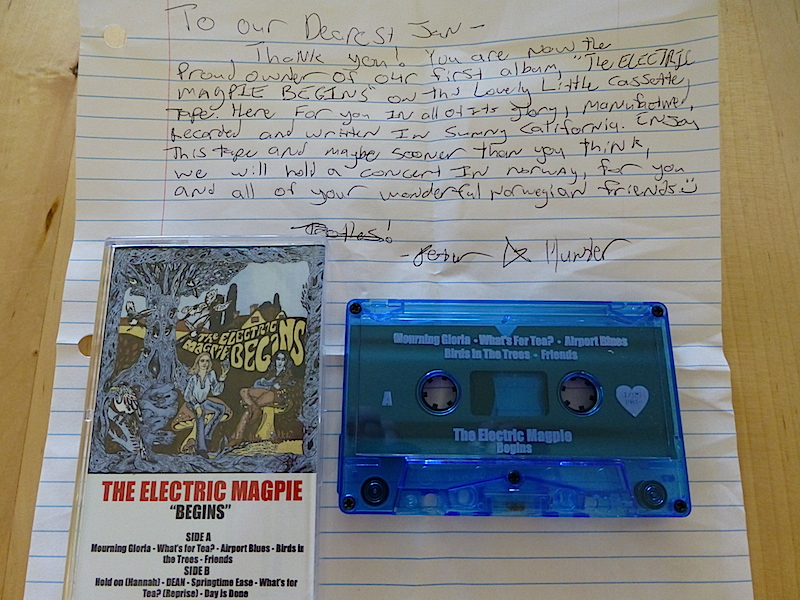 To our Dearest Jan -
Thank you! You are now the
proud owner of our first album, "The ELECTRIC
MAGPIE BEGINS" on this Lovely Little Cassette
Tape. Here For you In all of its glory, Manufactured,
Recorded and written In Sunny California. Enjoy
This tape and maybe sooner than you think,
we will hold a concert In Norway, for you
and all of your wonderful Norwegian friends
Tootles!
& Hunter
THE ELECTRIC
MAGPIE BEGINS
THE ELECTRIC MAGPIE
"BEGINS"
SIDE A
Mourning Gloria - What's for Tea? - Airport Blues - Birds in
the Trees - Friends
SIDE B
Hold on (Hannah) - DEAN - Springtime Ease - What's for
Tea? (Reprise) - Day is Done
Mourning Gloria - What's For Tea? - Airport Blues
Birds In The Trees - Friends
A
The Electric Magpie
Begins